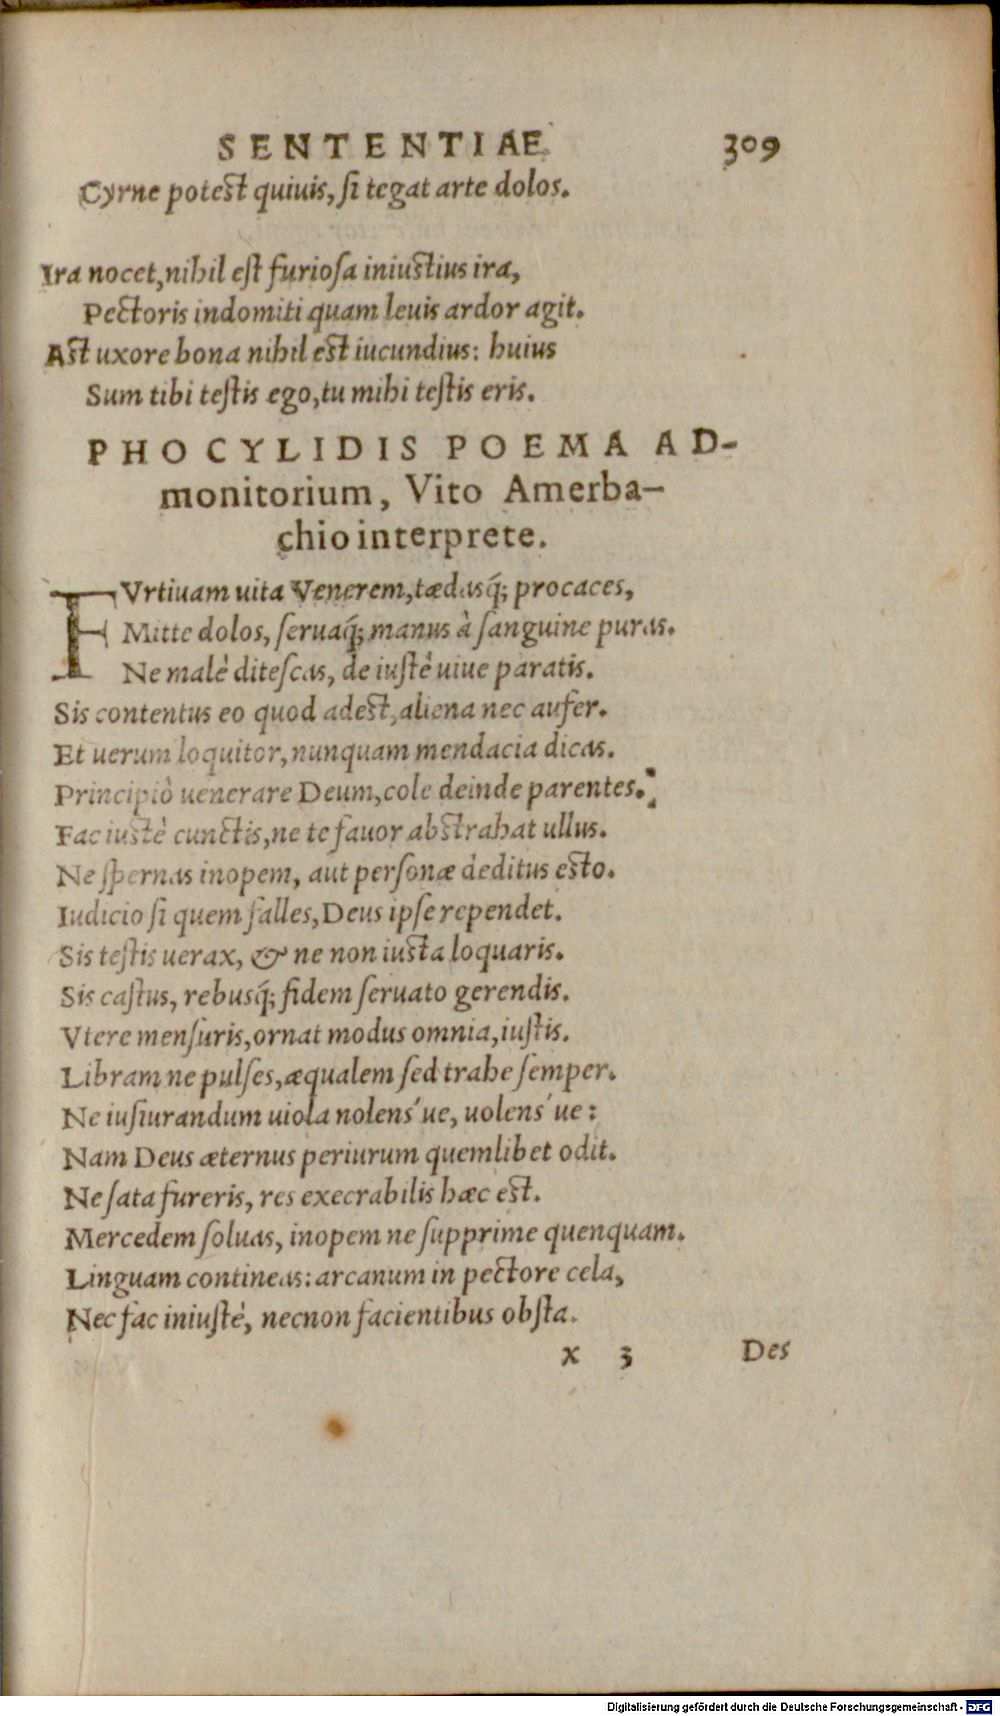 SENTENTIAE. 309
Cyrne potest quiuis, si tegat arte dolos.
Ira nocet, nihil est furiosa iniustius ira,
Pectoris indomiti quam leuis ardor agit.
Ast uxore bona nihil est iucundius: huius
Sum tibi testis ego, tu mihi testis eris.
PHOCYLIDIS POEMA AD-
monitorium, Vito Amerba-
chio interprete.
FVrtiuam uita Venerem, tædasq́; procaces,
Mitte dolos, seruaq́; manus à sanguine puras.
Ne malè ditescas, de iustè uiue paratis.
Sis contentus eo quod adest, aliena nec aufer.
Et uerum loquitor, nunquam mendacia dicas.
Principiò uenerare Deum, cole deinde parentes.
Fac iustè cunctis, ne te fauor abstrahat ullus.
Ne spernas inopem, aut personæ deditus esto.
Iudicio si quem falles, Deus ipse rependet.
Sis testis uerax, & ne non iusta loquaris.
Sis castus, rebusq́; fidem seruato gerendis.
Vtere mensuris, ornat modus omnia, iustis.
Libram ne pulses, æqualem sed trahe semper.
Ne iusiurandum uiola nolens´ue, uolens´ue:
Nam Deus æternus periurum quemlibet odit.
Ne sata fureris, res execrabilis hæc est.
Mercedem soluas, inopem ne supprime quenquam.
Linguam contineas: arcanum in pectore cela,
Nec fac iniustè, necnon facientibus obsta.
x 3 Des
Digitalisierung gefördert durch die Deutsche Forschungsgemeinschaft - DFG